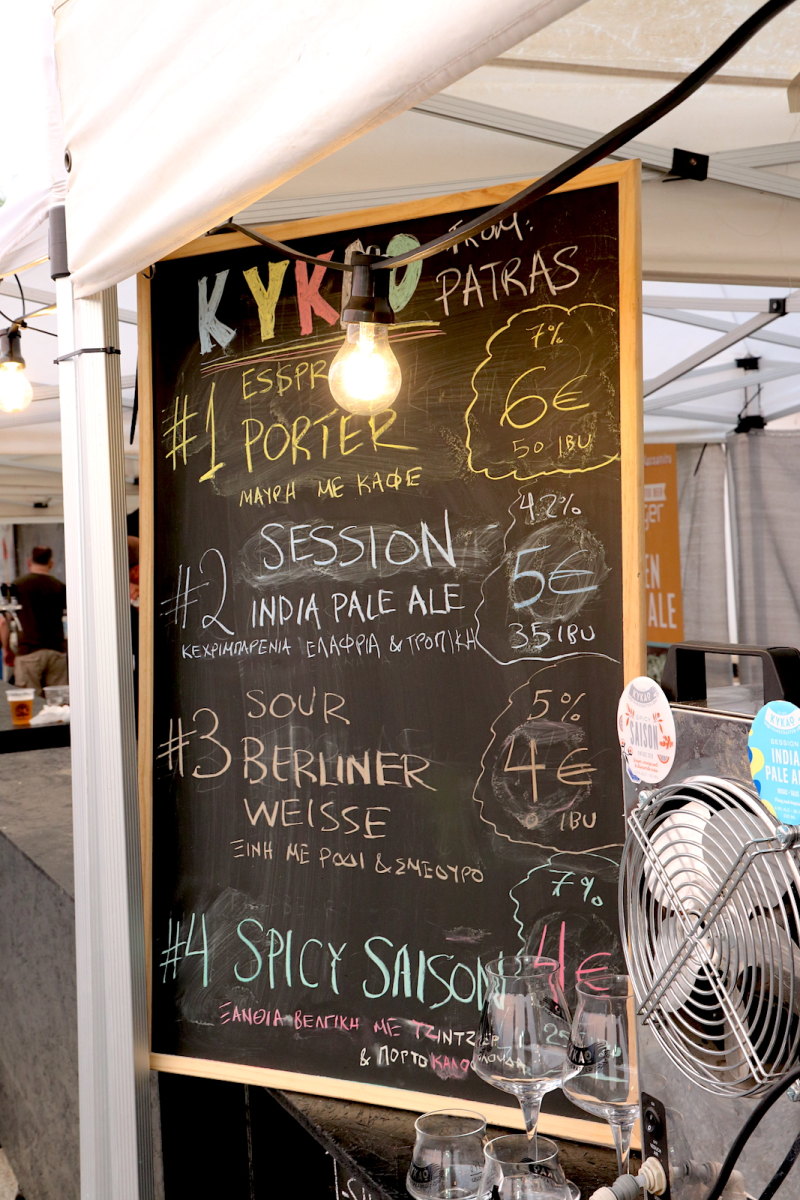 from:
PATRAS
#1
PORTER
ΜΑΥΡΗ ΜΕ ΚΑΦΕ
7%
6€
50 IBU
#2 SESSION
INDIA PALE ALE
ΚΕΧΡΙΜΠΑΡΕΝΙΑ ΕΛΑΦΡΙΑ & ΤΡΟΠΙΚΗ
4,2%
5€
35 IBU
#3 SOUR
BERLINER
WEISSE
ΞΙΝΗ ΜΕ ΡΟΔΙ & ΣΜΕΟΥΡΟ
5%
4€
IBU
#4 SPICY SAISON
ΞΑΝΘΙΑ ΒΕΛΓΙΚΗ ΜΕ ΤΖΙΝΤΖΕΡ
& ΠΟΡΤΟΚΑΛΟΦΛΟΥΔΑ
7%
4€
SAISON
SESSION
INDIA
PALE